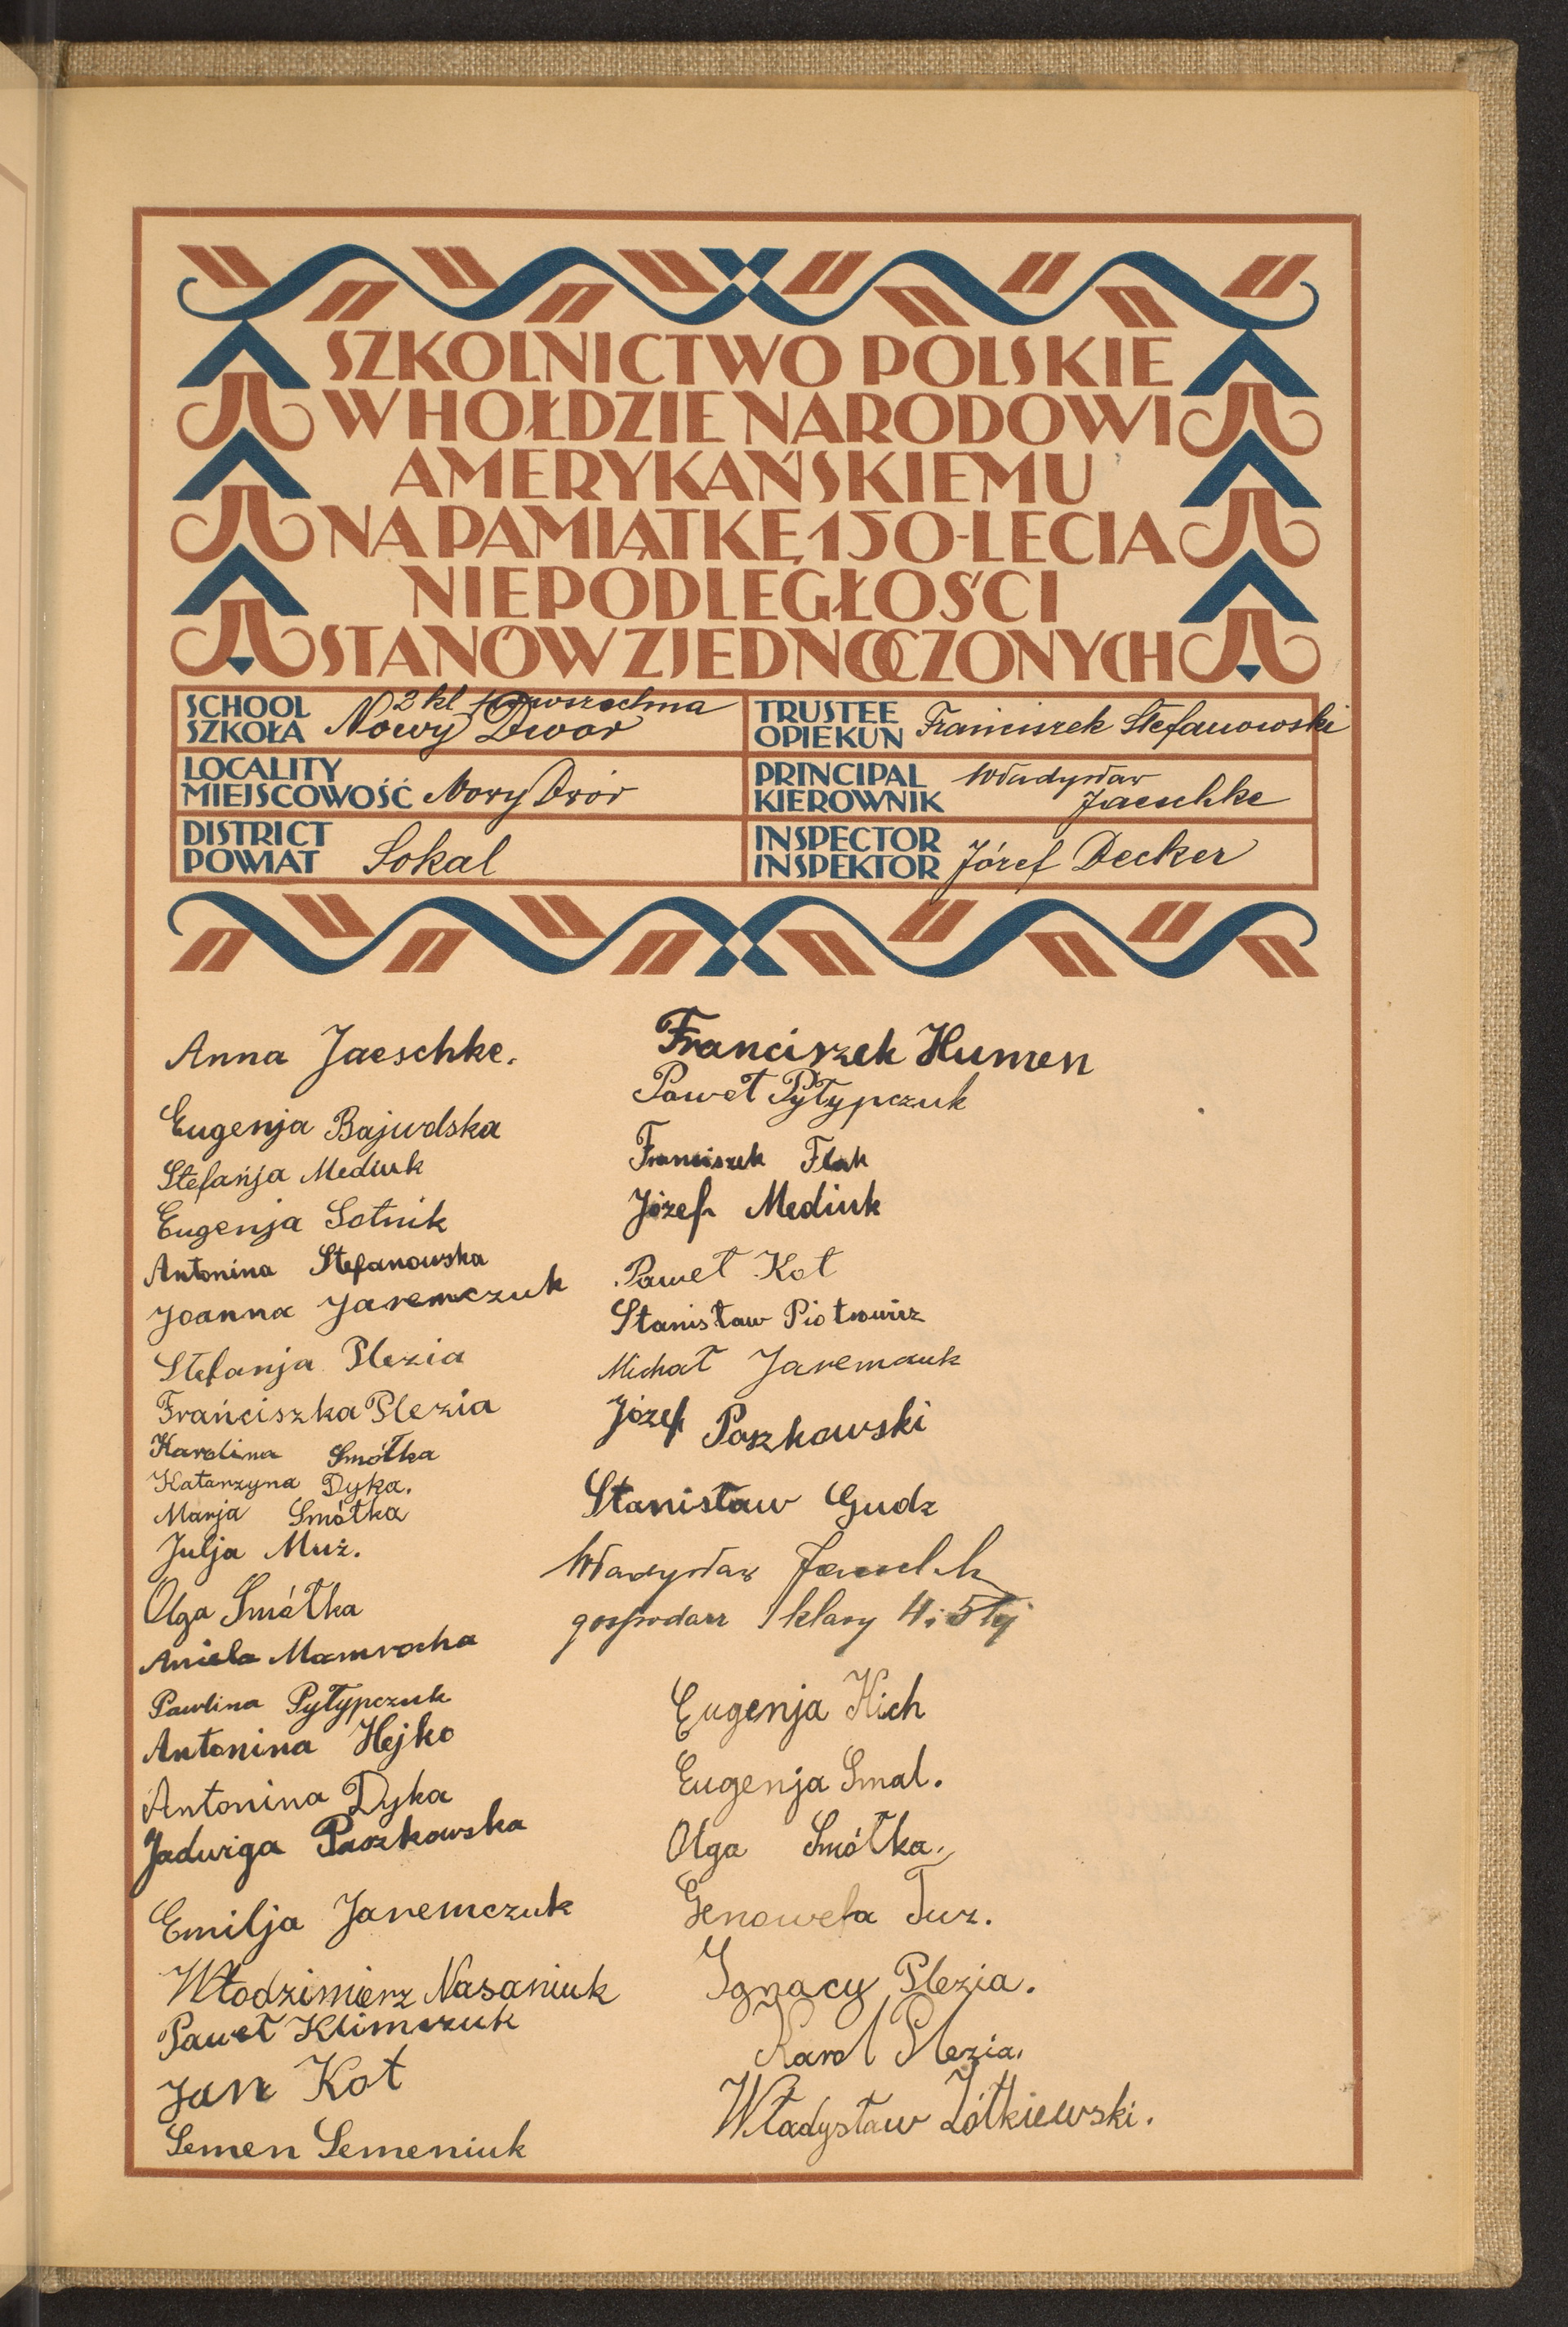 SZKOLNICTWO POLSKIE
W HOŁDZIE NARODOWI
AMERYKAŃSKIEMU
NA PAMIĄTKĘ 150-LECIA
NIEPODLEGŁOŚCI
STANÓW ZJEDNOCZONYCH
SCHOOL
SZKOŁA
2 kl powszechna
Nowy Dwór
TRUSTEE
OPIEKUN
Franciszek Stefanowski
LOCALITY
MIEJSCOWOŚĆ
Nowy Dwór
PRINCIPAL
KIEROWNIK
Władysław
Jaeschke
DISTRICT
POWIAT
Sokal
INSPECTOR
INSPEKTOR
Józef Decker
Anna Jaeschke.
Eugenja Bajwolska
Stefańja Mediuk
Eugenja Sotnik
Antonina Stefanowska
Joanna Jaremczuk
Stefanja Plezia
Frańciszka Plezia
Karolina Smótka
Katarzyna Dyka.
Marja Smótka
Julja Muż.
Olga Smótka
Aniela Mamrocha
Pawlina Pyłypczuk
Antonina Hejko
Antonina Dyka
Jadwiga Paszkowska
Emilja Jaremczuk
Włodzimierz Nasaniuk
Paweł Klimczuk
Jan Kot
Semen Semeniuk
Franciszek Humen
Paweł Pyłypczuk
Franciszek Flak
Józef Mediuk
Paweł Kot
Stanisław Piotrowicz
Michał Jaremczuk
Józef Paszkowski
Stanisław Gudz
Władysław Jaeschke
gospodarz klasy 4 i 5 tej
Eugenja Kich
Eugenja Smal.
Olga Smółka.
Genowefa Tuz.
Ignacy Plezia.
Karol Plezia.
Władysław Żółkiewski.